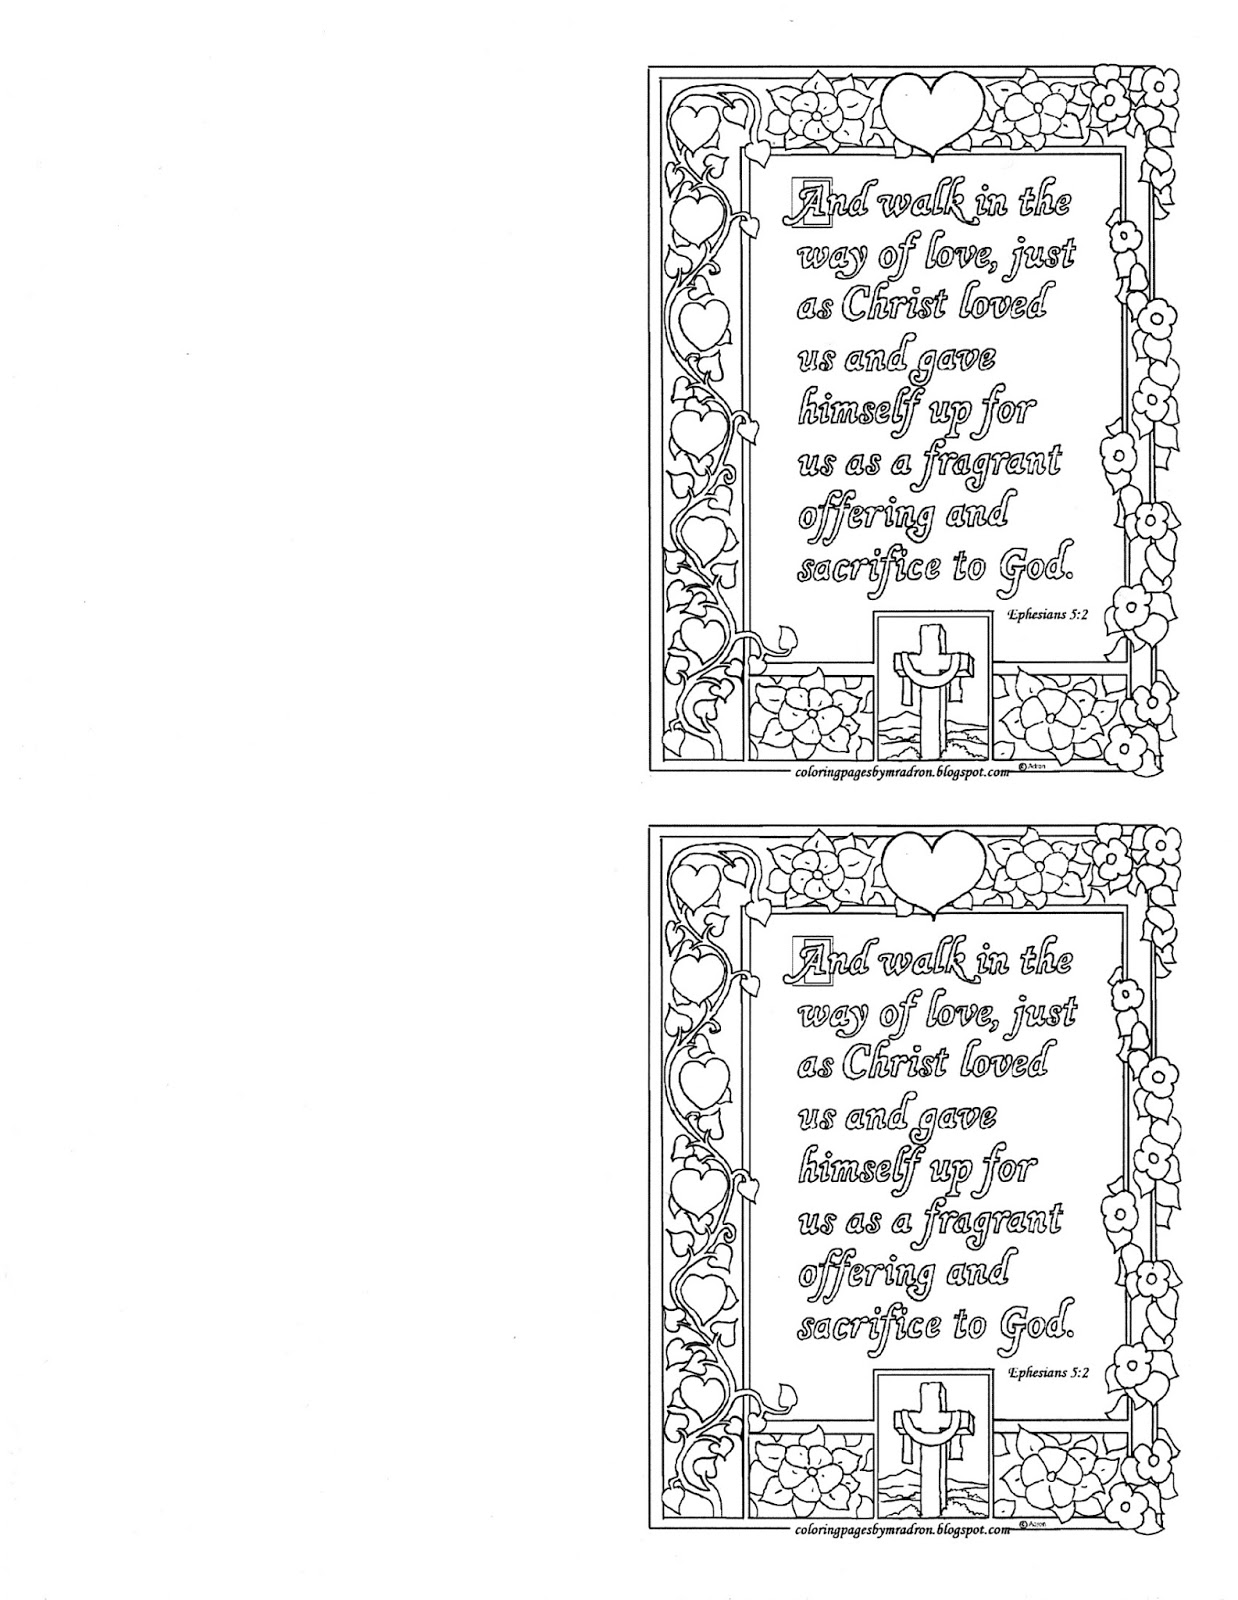 And walk in the
way of love, just
as Christ loved
us and gave
himself up for
us as a fragrant
offering and
sacrifice to God.
Ephesians 5:2
coloringpagesbymradron.blogspot.com © Adron
And walk in the
way of love, just
as Christ loved
us and gave
himself up for
us as a fragrant
offering and
sacrifice to God.
Ephesians 5:2
coloringpagesbymradron.blogspot.com © Adron